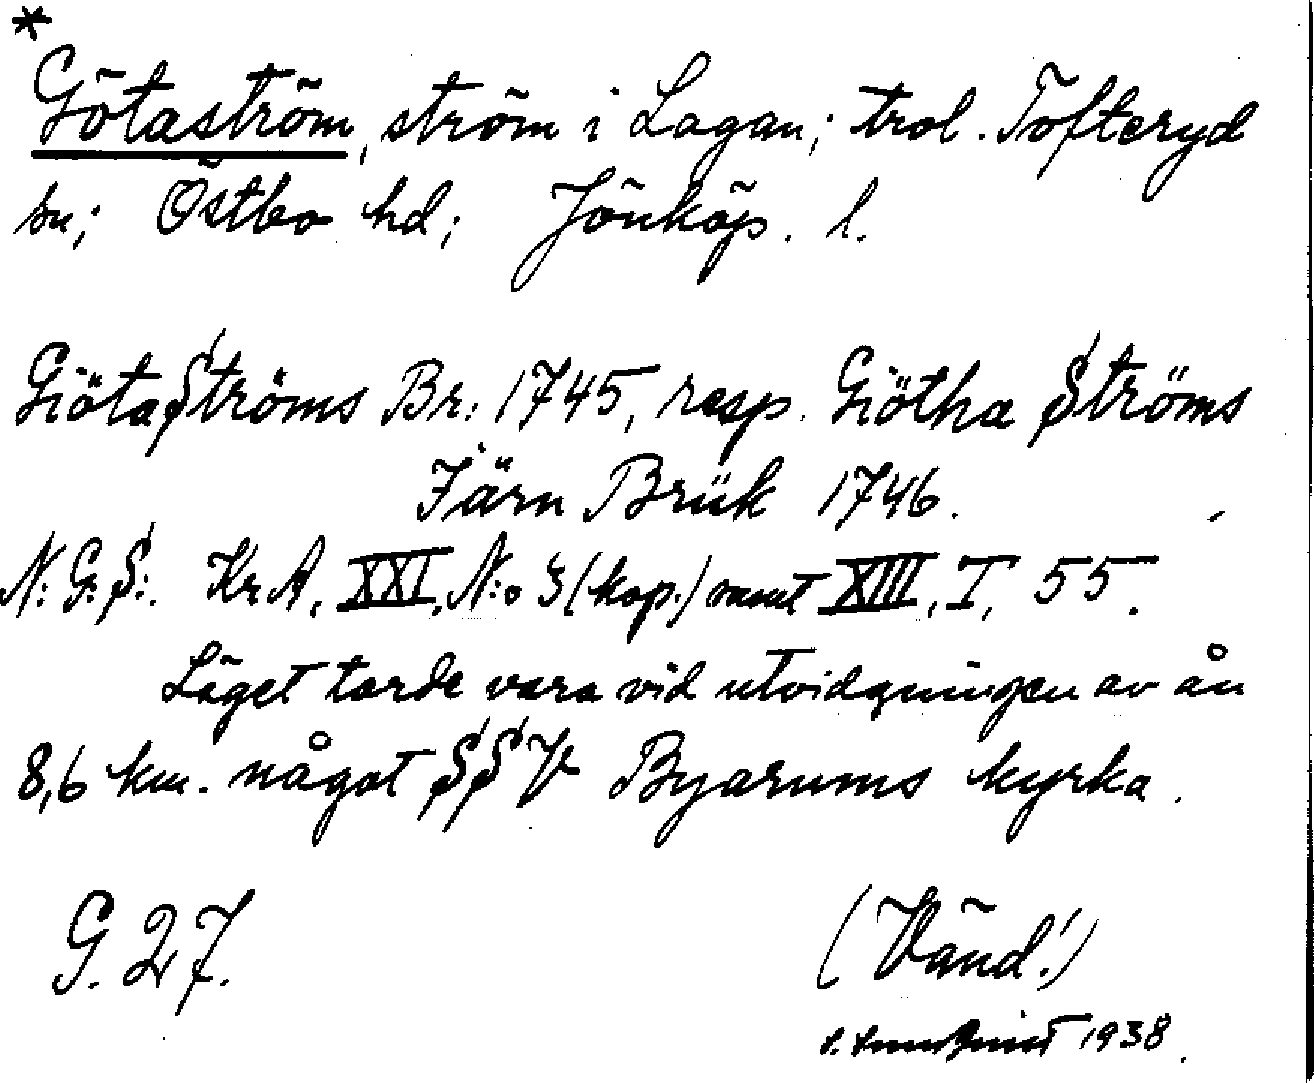 *
Götaström, ström i Lagan; trol. Tofteryd
sn; Östbo hd; Jönköp. l.
GiötaStröms Br: 1745, resp. Giötha Ströms
Järn Brük 1746.
N: G: S:. Kr. A, XXI, N:o 3 (kop.) samt XIII, I, 55.
Läget torde vara vid utvidgningen av ån
8,6 km. något SSV Byarums kyrka.
G. 27.
(Vänd!)
1938.